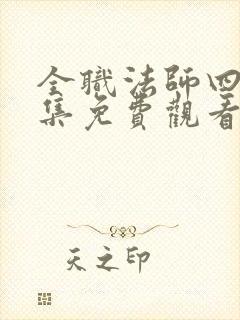 全職法師四
集免費觀看
天之印